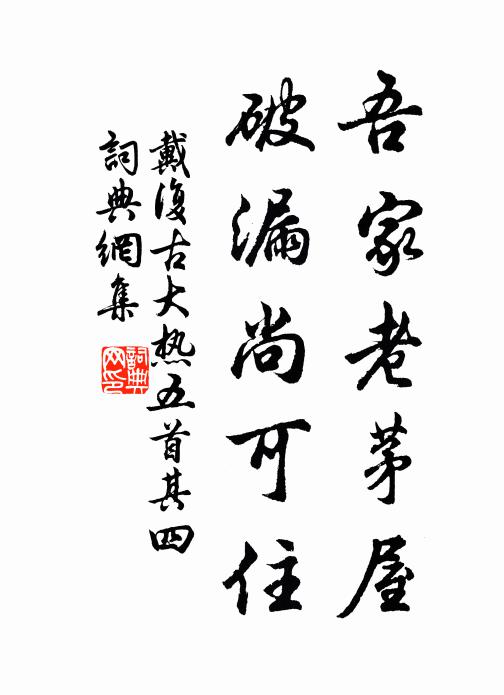 吾家老茅屋
破漏尚可住
戴復古大热五首其四
詞典網集
詞典
网印